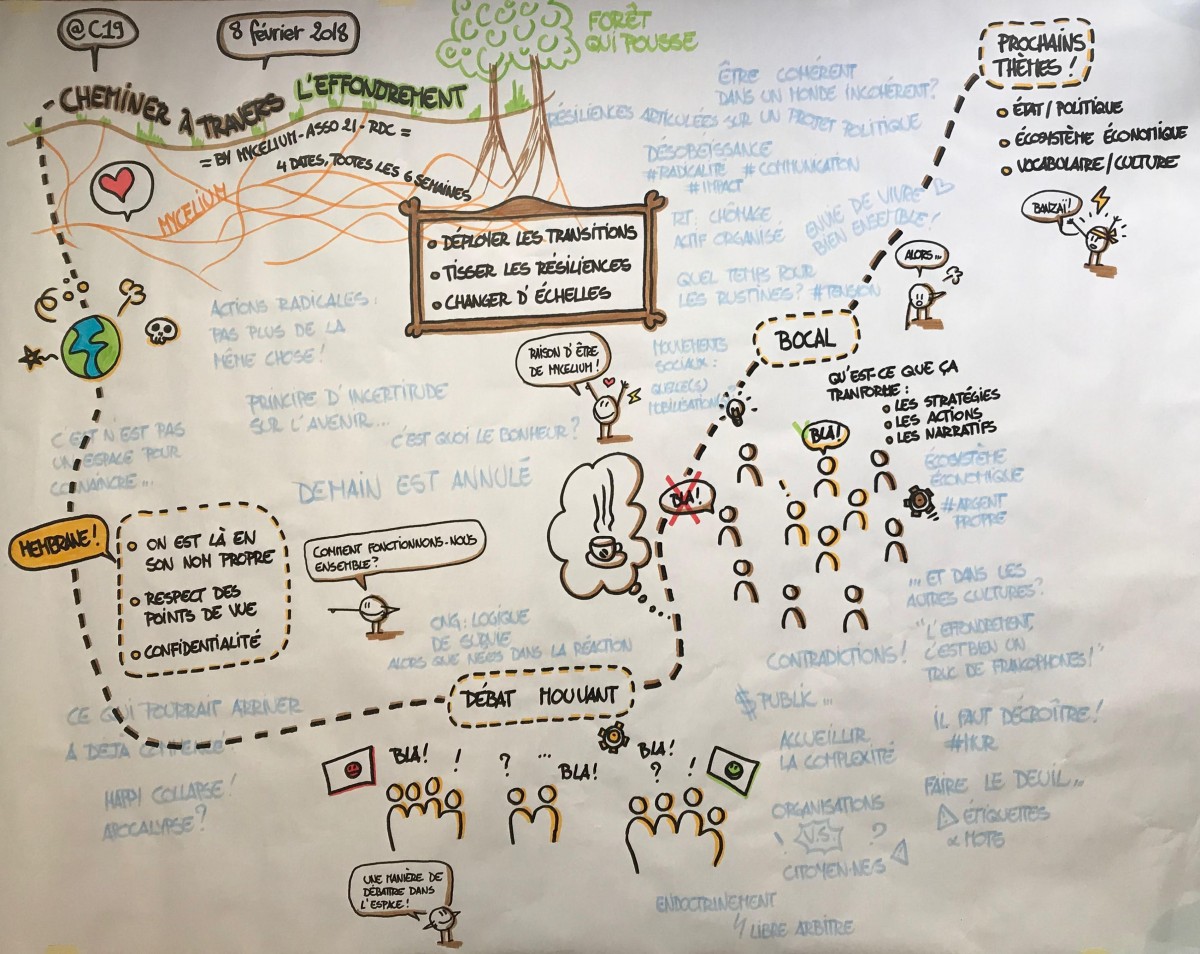 @C19
8 février 2018
FORÊT
QUI POUSSE
CHEMINER À TRAVERS L'EFFONDREMENT
= BY MYCELIUM - ASSO 21 - RDC =
4 DATES, TOUTES LES 6 SEMAINES
MYCELIUM
• DÉPLOYER LES TRANSITIONS
• TISSER LES RÉSILIENCES
• CHANGER D'ÉCHELLES
RAISON D'ÊTRE
DE MYCELIUM!
ACTIONS RADICALES:
PAS PLUS DE LA
MÊME CHOSE!
PRINCIPE D'INCERTITUDE
SUR L'AVENIR...
C'EST QUOI LE BONHEUR?
C'EST N'EST PAS
UN ESPACE POUR
CONVAINCRE...
DEMAIN EST ANNULÉ
MEMBRANE!
• ON EST LÀ EN
SON NOM PROPRE
• RESPECT DES
POINTS DE VUE
• CONFIDENTIALITÉ
COMMENT FONCTIONNONS-NOUS
ENSEMBLE?
ONG: LOGIQUE
DE SURVIE
ALORS QUE NÉES DANS LA RÉACTION
CE QUI POURRAIT ARRIVER
A DÉJÀ COMMENCÉ
HAPPY COLLAPSE!
APOCALYPSE?
DÉBAT MOUVANT
BLA! ! ? ... BLA! BLA! ? !
UNE MANIÈRE DE
DÉBATTRE DANS
L'ESPACE!
ÊTRE COHÉRENT
DANS UN MONDE INCOHÉRENT?
RÉSILIENCES ARTICULÉES SUR UN PROJET POLITIQUE
DÉSOBEISSANCE
#RADICALITÉ #COMMUNICATION
#IMPACT
CHÔMAGE
ACTIF ORGANISE
ENVIE DE VIVRE
BIEN ENSEMBLE!
QUEL TEMPS POUR
LES RUSTINES? #TENSION
MOUVEMENTS
SOCIAUX:
QUELLE(S)
MOBILISATIONS
BOCAL
ALORS...
QU'EST-CE QUE ÇA
TRANFORME:
• LES STRATÉGIES
• LES ACTIONS
• LES NARRATIFS
BLA!
BLA!
ÉCOSYSTÈME
ÉCONOMIQUE
#ARGENT
PROPRE
... ET DANS LES
AUTRES CULTURES?
"L'EFFONDREMENT,
C'EST BIEN UN
TRUC DE FRANCOPHONES!"
CONTRADICTIONS!
$ PUBLIC...
ACCUEILLIR
LA COMPLEXITÉ
ORGANISATIONS
! V.S. ?
CITOYEN·NE·S
IL FAUT DÉCROÎTRE!
#MUR
FAIRE LE DEUIL...
ÉTIQUETTES
MOTS
ENDOCTRINEMENT
LIBRE ARBITRE
PROCHAINS
THÈMES!
• ÉTAT / POLITIQUE
• ÉCOSYSTÈME ÉCONOMIQUE
• VOCABULAIRE / CULTURE
BANZAÏ!